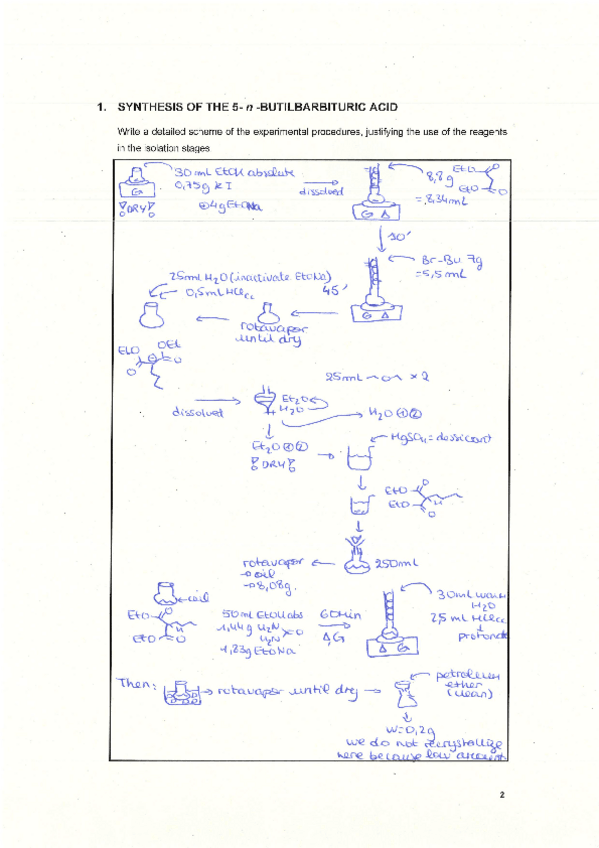 1. SYNTHESIS OF THE 5- n -BUTILBARBITURIC ACID
Write a detailed scheme of the experimental procedures, justifying the use of the reagents
in the isolation stages.
30 mL EtOH absolute
0,75g KI
dissolved
8,8g
EtO
EtO
O
O
= 8,34mL
G
DRY
4g EtONa
G Δ
30'
Br-Bu 7g
=5,5mL
G Δ
25mL H2O (inactivate EtONa)
0,5mL HCl
45'
rotavapor
until dry
EtO
OEt
O
O
25mL
O
x 2
dissolved
Et2O
H2O
H2O ① ②
Et2O ① ②
DRY
MgSO4 = dessicant
EtO
O
EtO
O
H
rotavapor
→ oil
→ 8,08g.
250mL
oil
EtO
O
EtO
O
H
50mL EtOH abs
1,44g H2N
H2N
O
1,23g EtONa
60min
Δ,G
Δ G
30mL warm
H2O
2,5 mL HCl
Then:
rotavapor until dry
petroleum
ether
(clean)
W=0,2g
we do not recrystallize
here because low amount
2